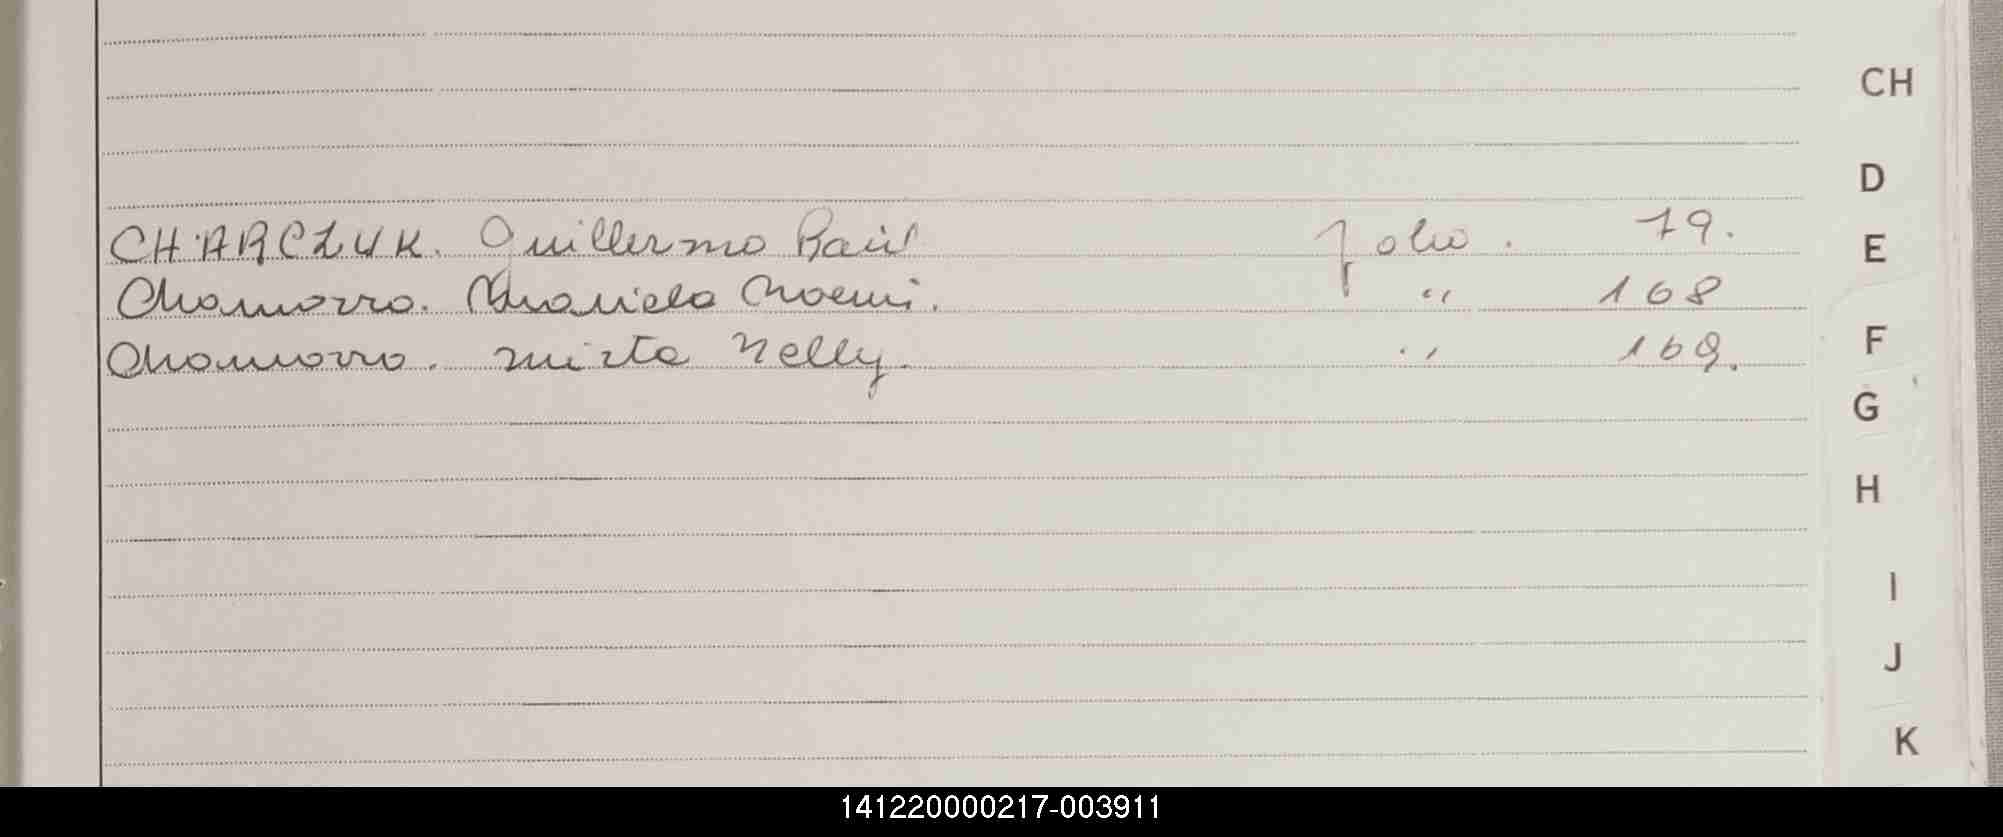 CH
D
CHARCZUK. Guillermo Raúl folio. 79.
E
Chamorro. Mariela Noemi. " 168
Chamorro. Mirta Nelly. " 169.
F
G
H
I
J
K
141220000217-003911